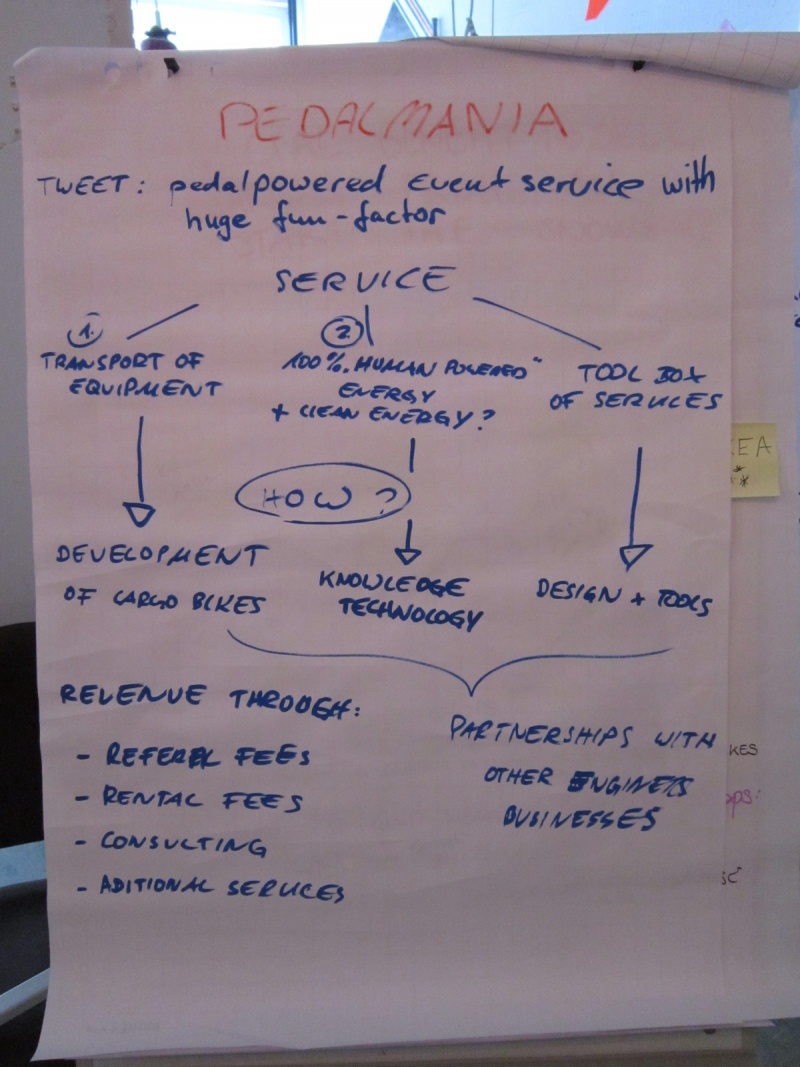 PEDALMANIA
TWEET: pedalpowered event service with
huge fun-factor
SERVICE
1.
TRANSPORT OF
EQUIPMENT
2
100% „HUMAN POWERED"
ENERGY
+ CLEAN ENERGY?
TOOL BOX
OF SERVICES
HOW?
DEVELOPMENT
OF CARGO BIKES
KNOWLEDGE
TECHNOLOGY
DESIGN + TOOLS
REVENUE THROUGH:
- REFERAL FEES
- RENTAL FEES
- CONSULTING
- ADITIONAL SERVICES
PARTNERSHIPS WITH
OTHER ENGINEERS
BUSINESSES
EA
KES
ops: